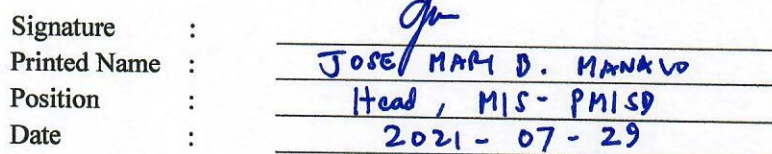 Signature :
Printed Name : JOSE MARI B. MANALO
Position : Head, MIS - PMISD
Date : 2021 - 07 - 29